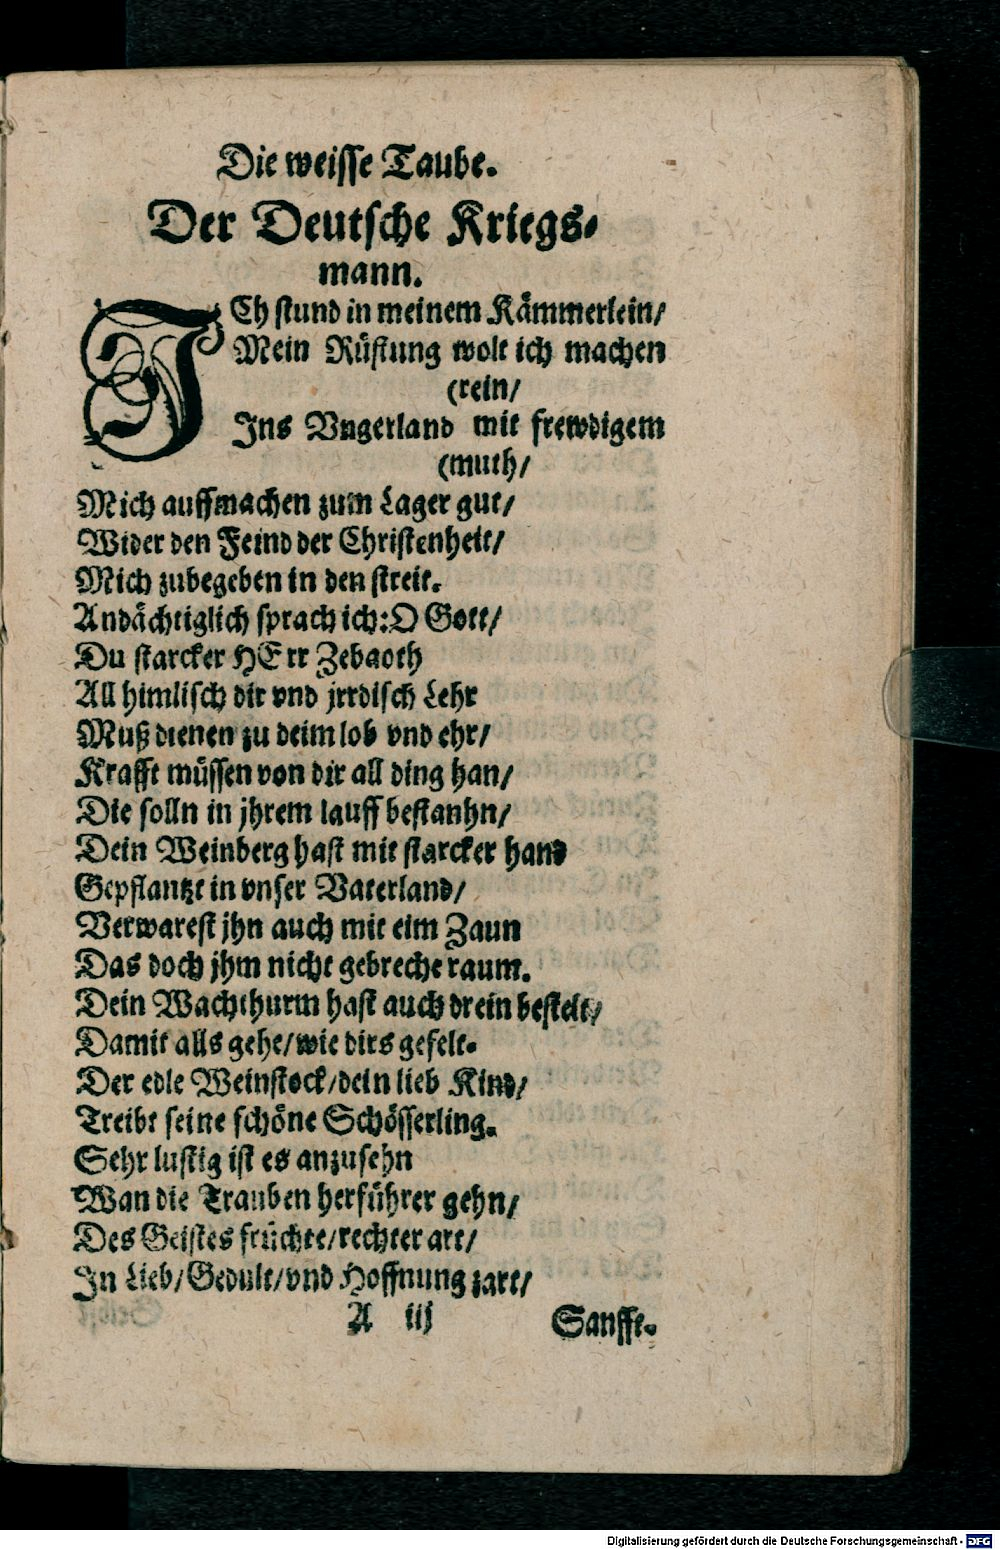 Die weisse Taube.
Der Deutsche Kriegs-
mann.
ICh stund in meinem Kämmerlein/
Mein Rüstung wolt ich machen
(rein/
Ins Vngerland mit frewdigem
(muth/
Mich auffmachen zum Lager gut/
Wider den Feind der Christenheit/
Mich zubegeben in den streit.
Andächtiglich sprach ich: O Gott/
Du starcker HErr Zebaoth
All himlisch dir vnd jrrdisch Lehr
Muß dienen zu deim lob vnd ehr/
Krafft müssen von dir all ding han/
Die solln in jhrem lauff bestanhn/
Dein Weinberg hast mit starcker hand
Gepflantzt in vnser Vaterland/
Verwarest jhn auch mit eim Zaun
Das doch jhm nicht gebreche raum.
Dein Wachthurm hast auch drein bestelt/
Damit alls gehe/wie dirs gefelt.
Der edle Weinstock/dein lieb Kind/
Treibt seine schöne Schösserling.
Sehr lustig ist es anzusehn
Wan die Trauben herführer gehn/
Des Geistes früchte/rechter art/
In Lieb/Gedult/vnd Hoffnung zart/
A iij
Sanfft.
Digitalisierung gefördert durch die Deutsche Forschungsgemeinschaft - DFG